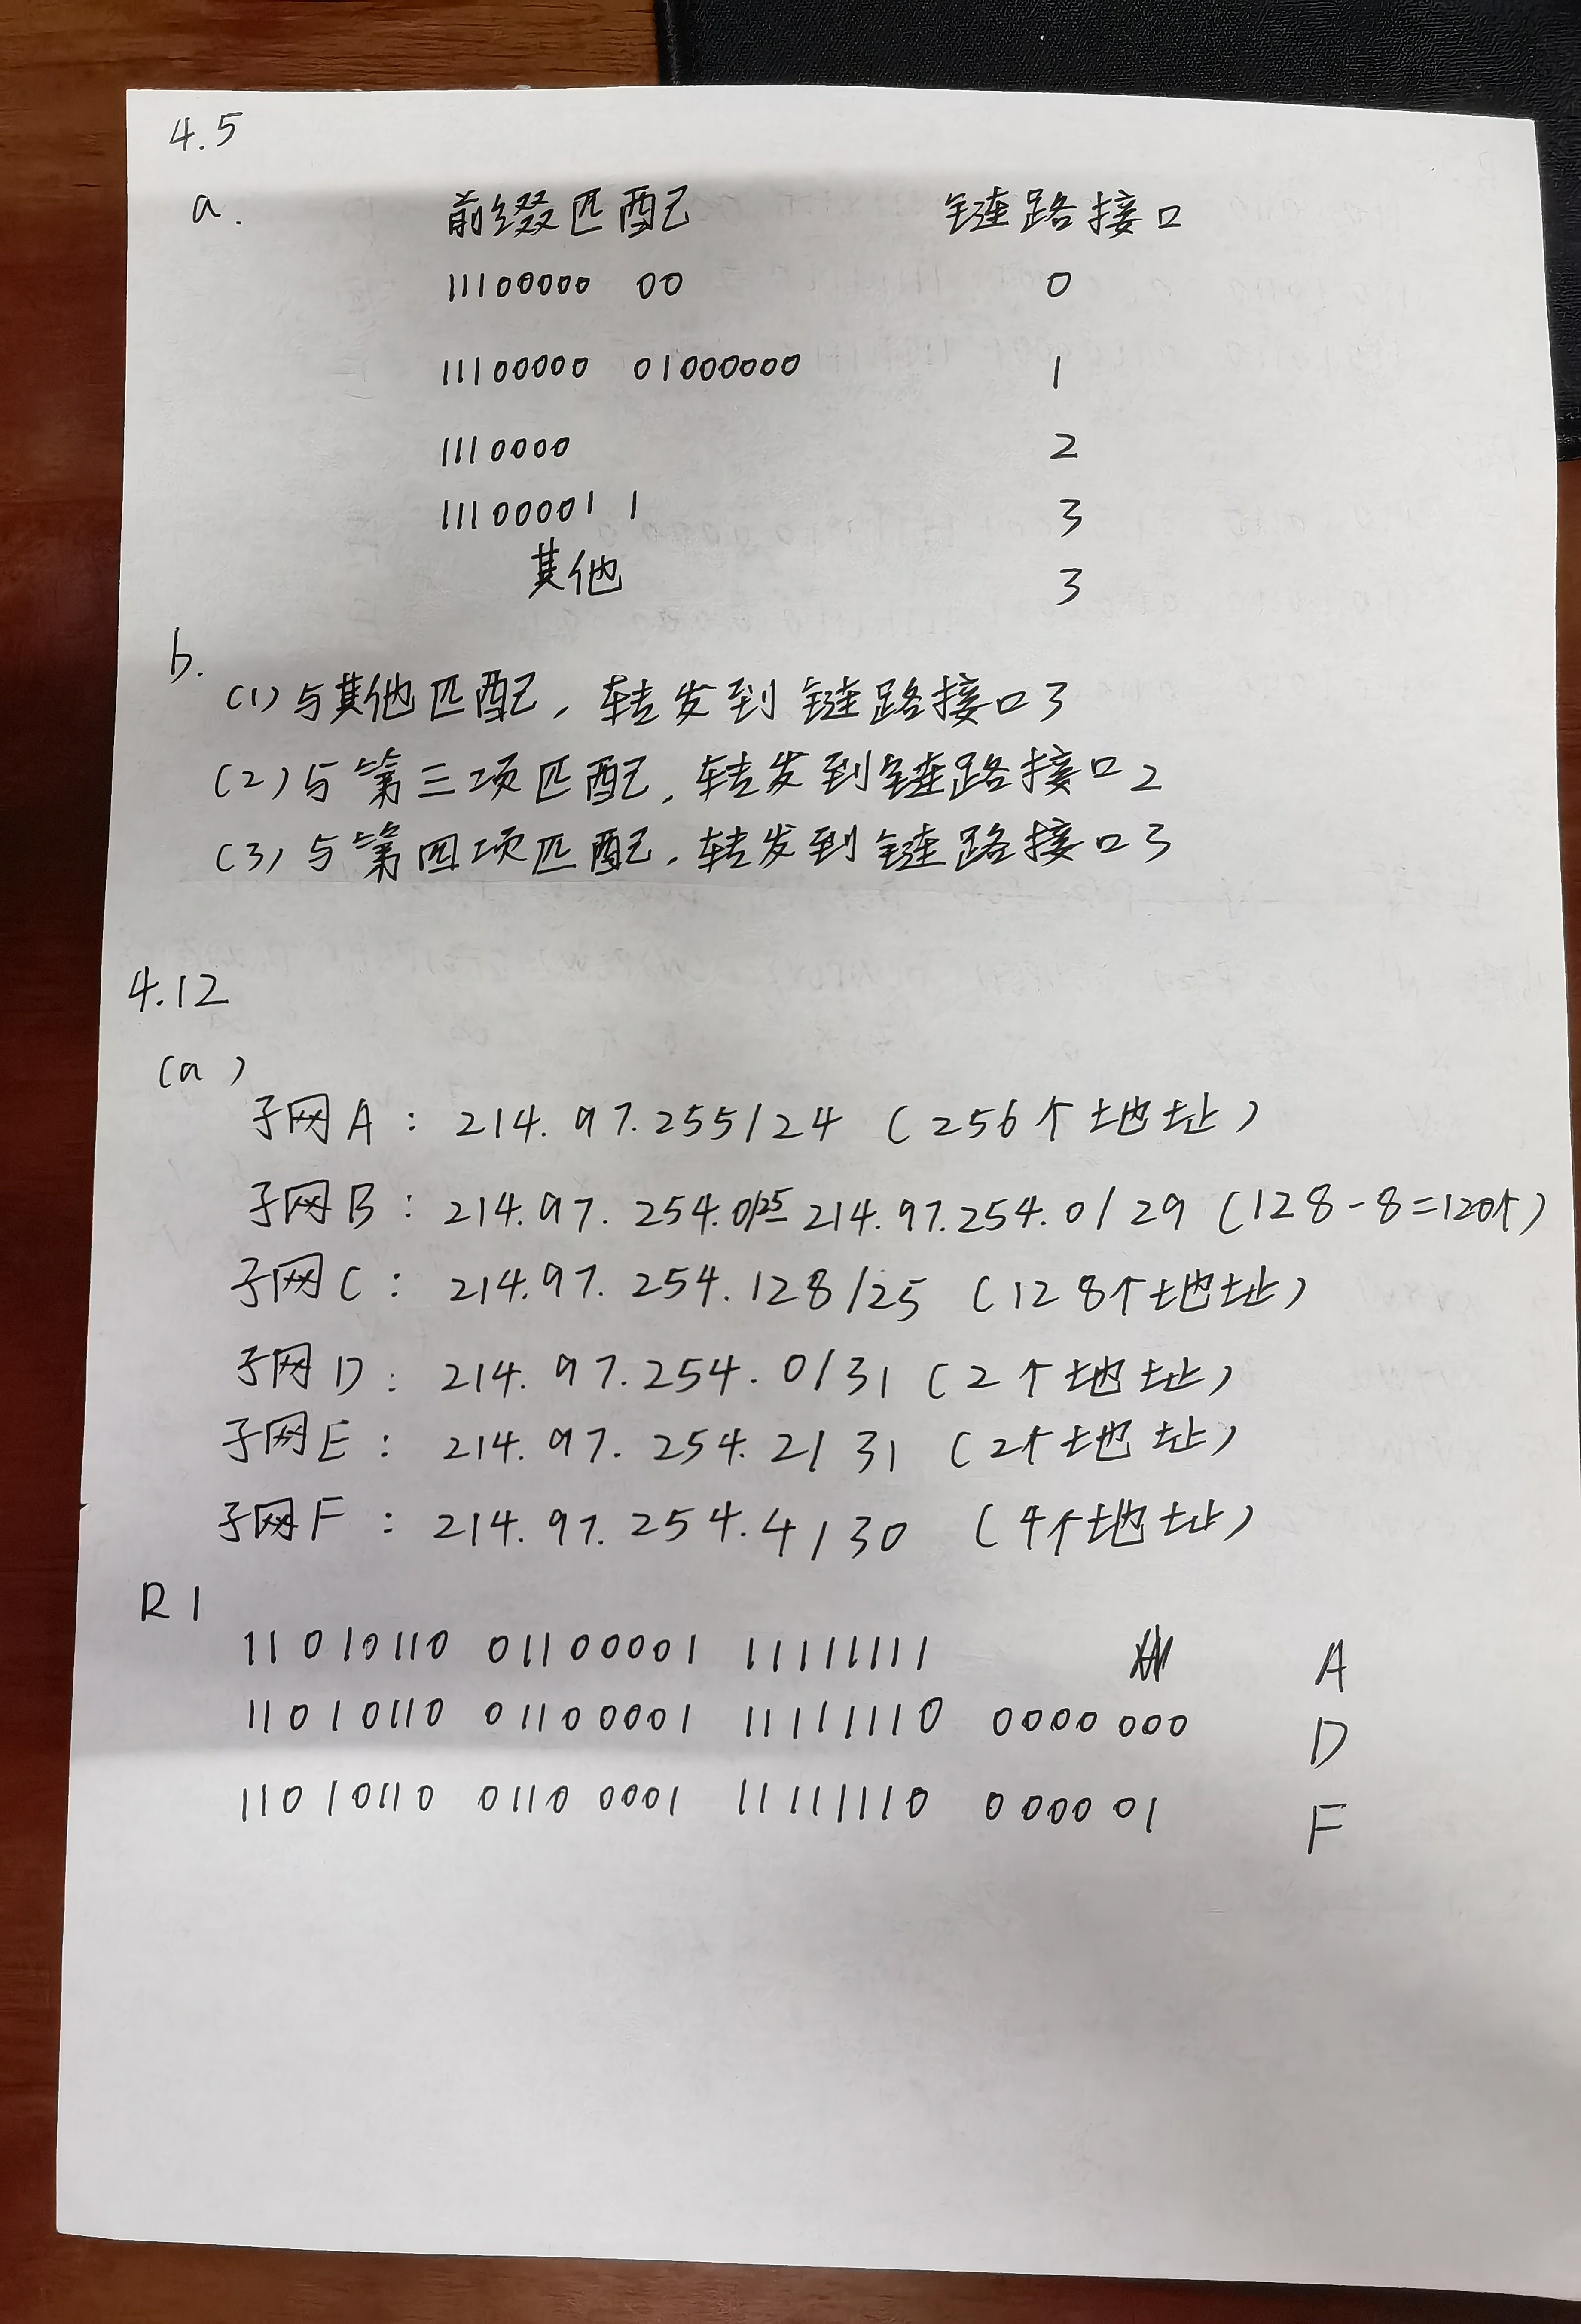 4.5
a. 前缀匹配 链路接口
11100000 00 0
11100000 01000000 1
1110000 2
11100001 1 3
其他 3
b.
(1) 与其他匹配, 转发到链路接口3
(2) 与第三项匹配, 转发到链路接口2
(3) 与第四项匹配, 转发到链路接口3
4.12
(a)
子网A: 214.97.255/24 (256个地址)
子网B: 214.97.254.0/25 - 214.97.254.0/29 (128-8=120个)
子网C: 214.97.254.128/25 (128个地址)
子网D: 214.97.254.0/31 (2个地址)
子网E: 214.97.254.2/31 (2个地址)
子网F: 214.97.254.4/30 (4个地址)
R1
11010110 01100001 11111111 A
11010110 01100001 11111110 0000000 D
11010110 01100001 11111110 000001 F